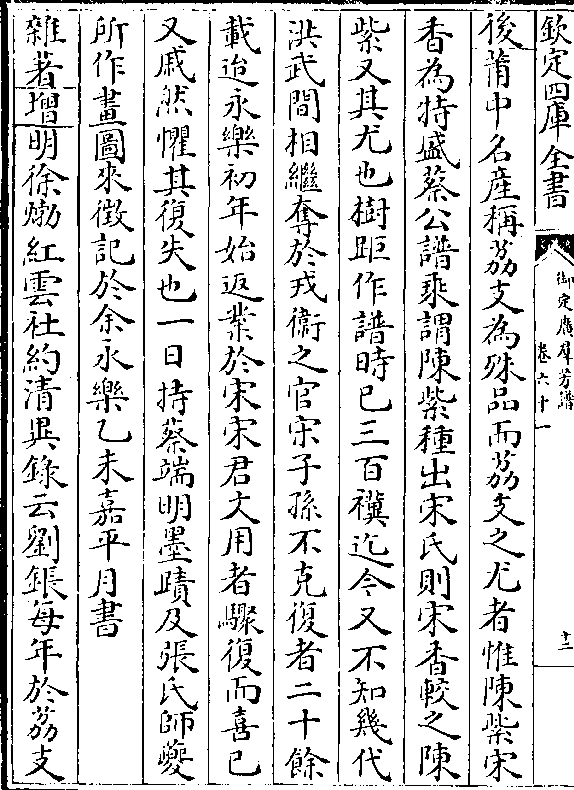 欽定四庫全書
御定廣羣芳譜
卷六十一
十二
後莆中名産稱荔支為殊品而荔支之尤者惟陳紫宋
香為特盛蔡公譜乘謂陳紫種出宋氏則宋香較之陳
紫又其尤也樹距作譜時已三百禩迄今又不知幾代
洪武間相繼奪於戎衛之官宋子孫不克復者二十餘
載迨永樂初年始返業於宋宋君大用者驟復而喜已
又戚然懼其復失也一日持蔡端明墨蹟及張氏師夔
所作畫圖來徴記於余永樂乙未嘉平月書
雜著增明徐𤊹紅雲社約清異錄云劉鋹每年於荔支